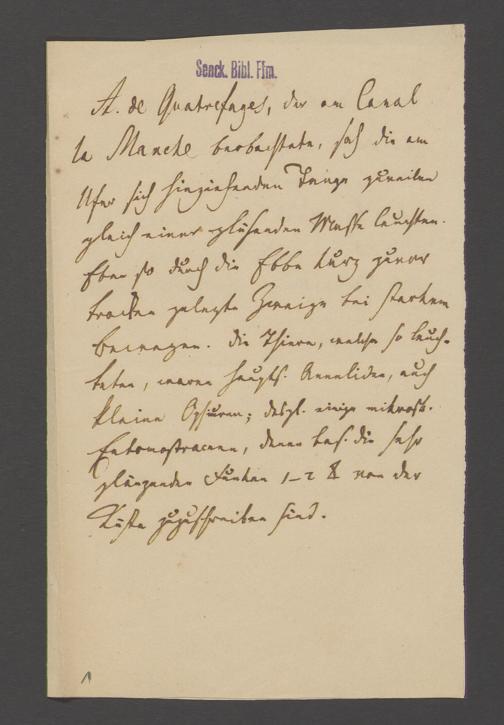 Senck. Bibl. Ffm.
A. de Quatrefages, der am Canal
la Manche beobachtete, sah die am
Ufer sich hinziehenden Tange zuweilen
gleich einer glühenden Masse leuchten.
Eben so durch die Ebbe kurz zuvor
trocken gelegte Zweige bei starkem
Bewegen. Die Thiere, welche so leuch-
teten, waren haupts. Anneliden, auch
kleine Ophiuren; desgl. einige mikrosk.
Entomostraceen, denen bes. die sehr
glänzenden Funken 1–2 von der
Küste zuzuschreiben sind.
1